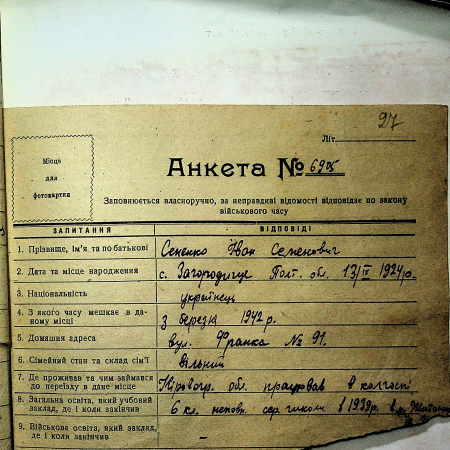 27
Літ.
Місце
для
фотокартки
Анкета № 6905
Заповнюється власноручно, за неправдиві відомості відповідає по закону
військового часу
ЗАПИТАННЯ ВІДПОВІДІ
1. Прізвище, ім'я та по батькові Сененко Іван Семенович
2. Дата та місце народження с. Загородище Полт. обл. 13/IX 1924 р.
3. Національність українець
4. З якого часу мешкає в да-
ному місці з березня 1942 р.
5. Домашня адреса вул. Франка № 91.
6. Сімейний стан та склад сім'ї вільний
7. Де проживав та чим займався
до переїзду в дане місце обл. працював в колгоспі
8. Загальна освіта, який учбовий
заклад, де і коли закінчив 6 кл. неповн. сер. школи в 1939 р. в м.
9. Військова освіта, який заклад,
де і коли закінчив –